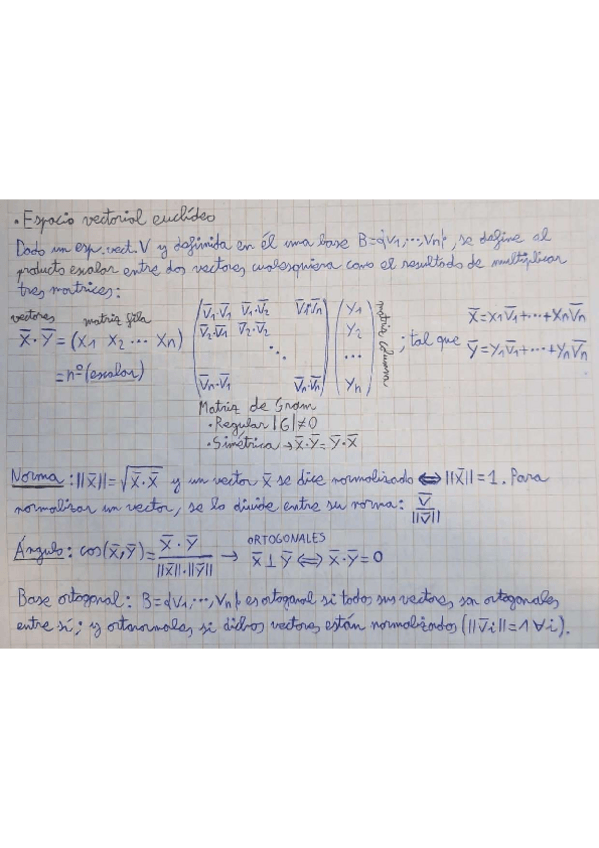 · Espacio vectorial euclídeo
Dado un esp. vect. V y definida en él una base B={v1,···,vn}, se define el
producto escalar entre dos vectores cualesquiera como el resultado de multiplicar
tres matrices:
vectores matriz fila
X̅·Y̅ = (X1 X2 ··· Xn) (V̅1·V̅1 V̅1·V̅2 V̅1·V̅n) (Y1) matriz columna ; tal que X̅=X1V̅1+···+XnV̅n
V̅2·V̅1 V̅2·V̅2 Y2
⋱ ··· Y̅=Y1V̅1+···+YnV̅n
= nº (escalar) V̅n·V̅1 V̅n·V̅n Yn
Matriz de Gram
· Regular |G|≠0
· Simétrica → X̅·Y̅ = Y̅·X̅
Norma: ||X̅||=√X̅·X̅ y un vector X̅ se dice normalizado ⟺ ||X̅||=1. Para
normalizar un vector, se lo divide entre su norma: V̅/||V̅||
Ángulo: cos(X̅,Y̅)= X̅·Y̅/||X̅||·||Y̅|| → ORTOGONALES X̅⊥Y̅ ⟺ X̅·Y̅=0
Base ortogonal: B={v1,···,vn} es ortogonal si todos sus vectores son ortogonales
entre sí; y ortonormales si dichos vectores están normalizados (||V̅i||=1 ∀i).